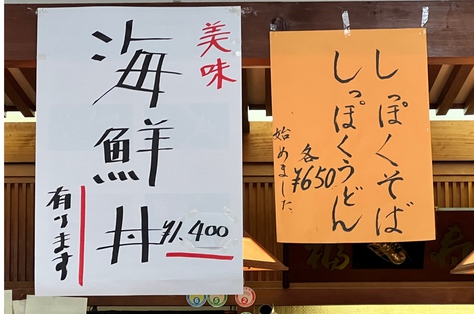 美味
海鮮丼
¥1.400
有ります
しっぽくそば
しっぽくうどん
各¥650
始めました